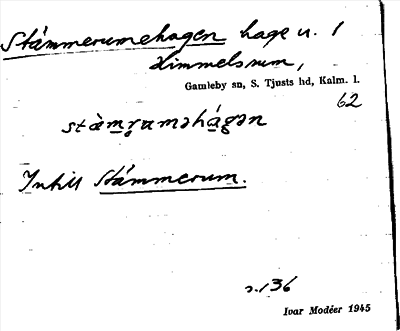 Stámmerumehagen hage u. 1
Himmelsrum,
Gamleby sn, S. Tjusts hd, Kalm. l.
62
stàmruməhágən
Intill Stámmerum.
s. 136
Ivar Modéer 1945